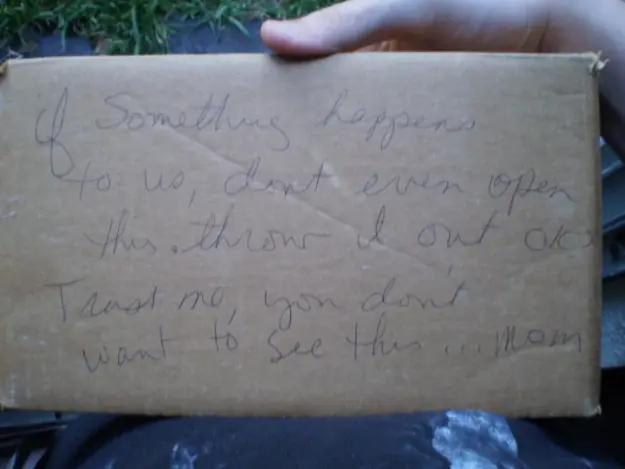 if Something happens
to us, dont even open
this. throw it out OK
Trust me, you dont
want to see this ... Mom